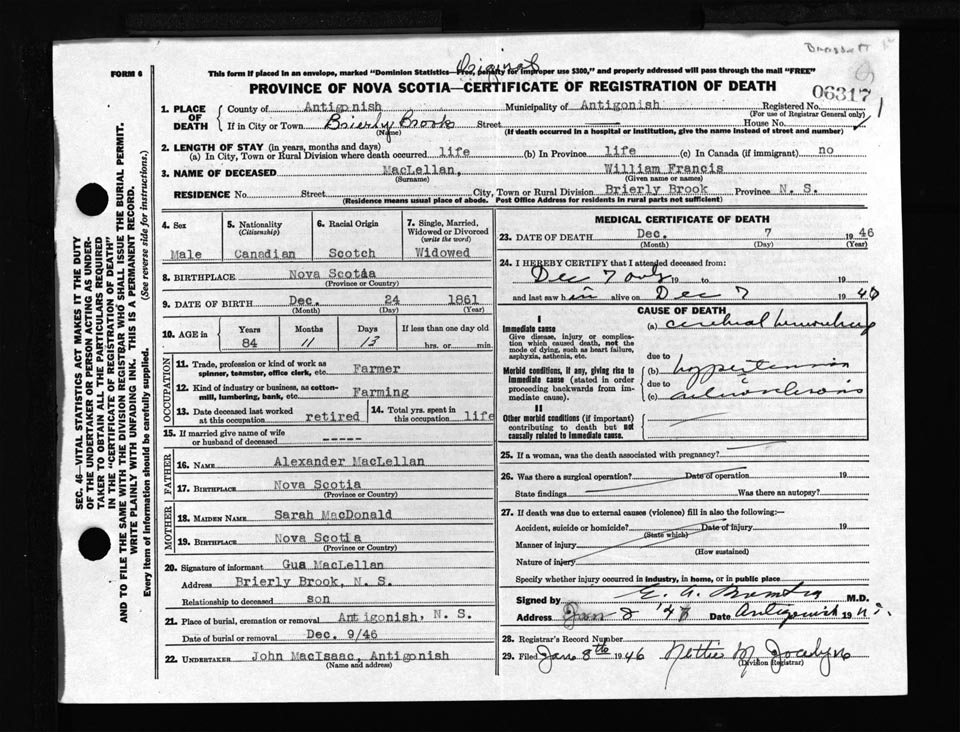 Original
FORM 6
This form if placed in an envelope, marked "Dominion Statistics—Free, penalty for improper use $300," and properly addressed will pass through the mail "FREE"
PROVINCE OF NOVA SCOTIA—CERTIFICATE OF REGISTRATION OF DEATH
06317
1. PLACE OF DEATH
County of Antigonish Municipality of Antigonish Registered No.
(For use of Registrar General only)
If in City or Town Brierly Brook Street House No.
(Name) (If death occurred in a hospital or institution, give the name instead of street and number)
2. LENGTH OF STAY (in years, months and days)
(a) In City, Town or Rural Division where death occurred life (b) In Province life (c) In Canada (if immigrant) no
3. NAME OF DECEASED MacLellan, William Francis
(Surname) (Given name or names)
RESIDENCE No. Street City, Town or Rural Division Brierly Brook Province N. S.
(Residence means usual place of abode. Post Office Address for residents in rural parts not sufficient)
SEC. 46—VITAL STATISTICS ACT MAKES IT THE DUTY
OF THE UNDERTAKER OR PERSON ACTING AS UNDER-
TAKER TO OBTAIN ALL THE PARTICULARS REQUIRED
IN THE "CERTIFICATE OF REGISTRATION OF DEATH"
AND TO FILE THE SAME WITH THE DIVISION REGISTRAR WHO SHALL ISSUE THE BURIAL PERMIT.
WRITE PLAINLY WITH UNFADING INK. THIS IS A PERMANENT RECORD.
Every item of information should be carefully supplied. (See reverse side for instructions.)
4. Sex 5. Nationality (Citizenship) 6. Racial Origin 7. Single, Married, Widowed or Divorced (write the word)
Male Canadian Scotch Widowed
8. BIRTHPLACE Nova Scotia
(Province or Country)
9. DATE OF BIRTH Dec. 24 1861
(Month) (Day) (Year)
10. AGE in Years Months Days If less than one day old
84 11 13 hrs. or min.
OCCUPATION
11. Trade, profession or kind of work as
spinner, teamster, office clerk, etc. Farmer
12. Kind of industry or business, as cotton-
mill, lumbering, bank, etc. Farming
13. Date deceased last worked
at this occupation retired
14. Total yrs. spent in
this occupation life
15. If married give name of wife
or husband of deceased -----
FATHER
16. NAME Alexander MacLellan
17. BIRTHPLACE Nova Scotia
(Province or Country)
MOTHER
18. MAIDEN NAME Sarah MacDonald
19. BIRTHPLACE Nova Scotia
(Province or Country)
20. Signature of informant Gus MacLellan
Address Brierly Brook, N. S.
Relationship to deceased son
21. Place of burial, cremation or removal Antigonish, N. S.
Date of burial or removal Dec. 9/46
22. UNDERTAKER John MacIsaac, Antigonish
(Name and address)
MEDICAL CERTIFICATE OF DEATH
23. DATE OF DEATH Dec. 7 1946
(Month) (Day) (Year)
24. I HEREBY CERTIFY that I attended deceased from:
Dec 7 only 19 to 19
and last saw him alive on Dec 7 1946
CAUSE OF DEATH
I
Immediate cause
Give disease, injury or complica-
tion which caused death, not the
mode of dying, such as heart failure,
asphyxia, asthenia, etc.
(a) cerebral hemorrhage
due to
Morbid conditions, if any, giving rise to
immediate cause (stated in order
proceeding backwards from im-
mediate cause).
(b) hypertension
due to
(c) arteriosclerosis
II
Other morbid conditions (if important)
contributing to death but not
causally related to immediate cause.
25. If a woman, was the death associated with pregnancy?
26. Was there a surgical operation? Date of operation 19
State findings Was there an autopsy?
27. If death was due to external causes (violence) fill in also the following:—
Accident, suicide or homicide? Date of injury 19
(State which)
Manner of injury
(How sustained)
Nature of injury
Specify whether injury occurred in industry, in home, or in public place
Signed by E. A. M.D.
Address Jan 8 '47 Date Antigonish 19 N.S.
28. Registrar's Record Number
29. Filed Jan 8th 1946 Nettie M Jocelyn
(Division Registrar)